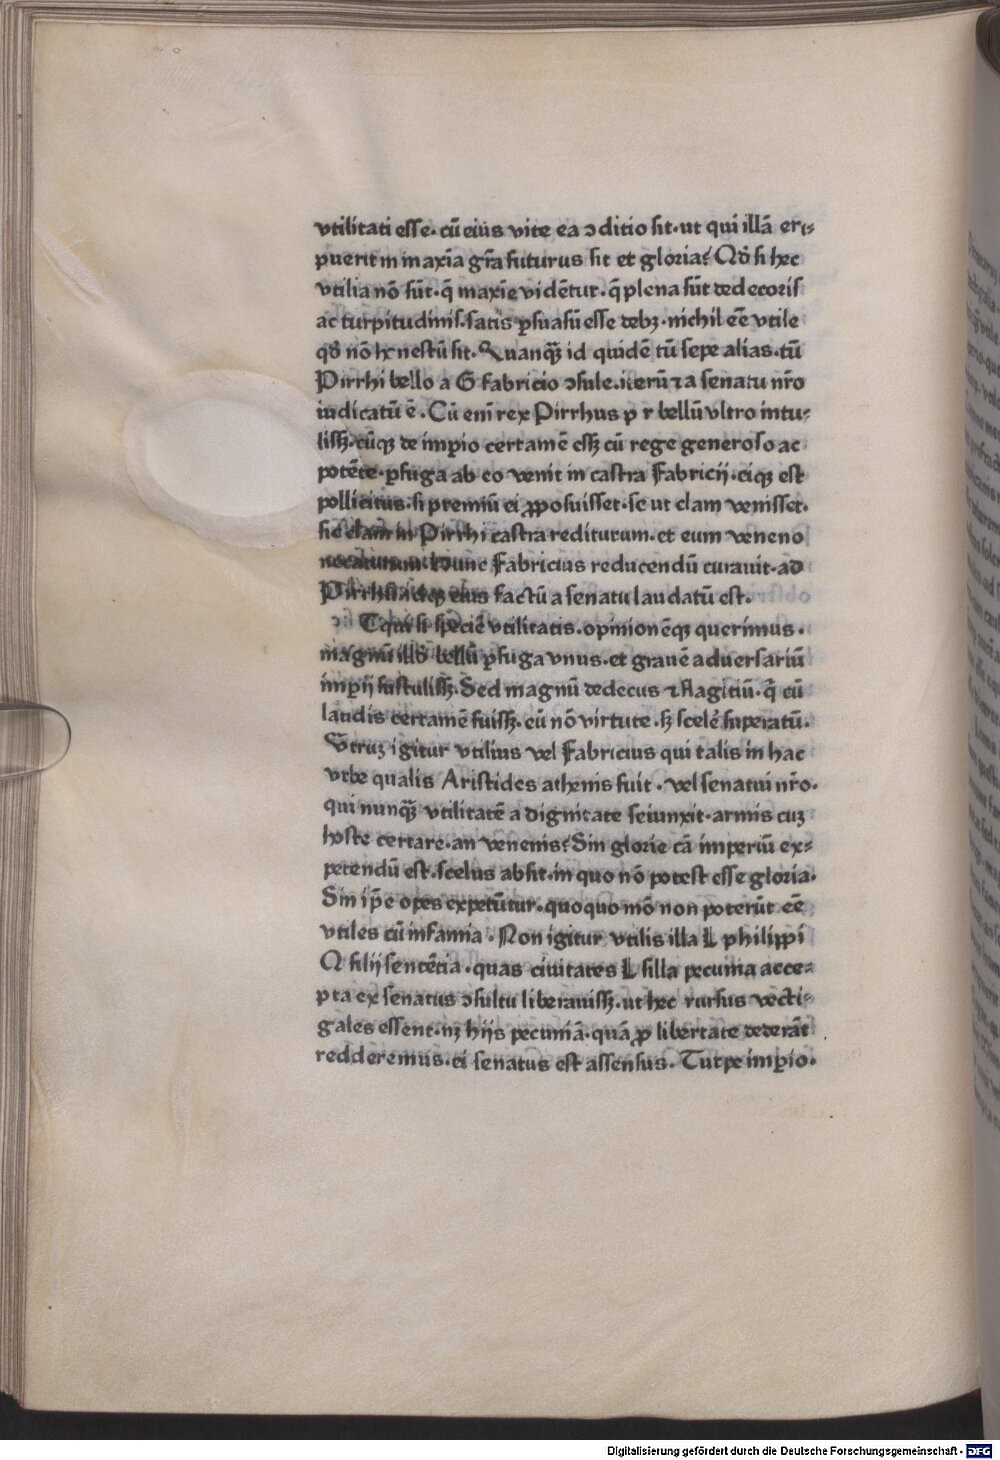 vtilitati esse. cū eius vite ea ↄditio sit. ut qui illā eri-
puerit in maxīa gr̄a futurus sit et gloria? Qd̛ si hec
vtilia nō sūt. q̄ maxīe vidētur. q̄ plena sūt dedecoris
ac turpitudinis. satis ꝑsuasū esse debꝫ. nichil eē vtile
qd̛ nō honestū sit. Quanqꝫ id quidē tū sepe alias. tū
Pirrhi bello a G Fabricio ↄsule. iterū ⁊ a senatu nr̄o
iudicatū ē. Cū eni rex Pirrhus p r bellū vltro intu-
lissꝫ. cūqꝫ de imꝑio certamē essꝫ cū rege generoso ac
potēte. ꝑfuga ab eo venit in castra Fabricij. eiqꝫ est
pollicitus. si premiū ei ꝓposuisset. se ut clam venisset.
sic clam in Pirrhi castra rediturum. et eum veneno
necaturum. hunc Fabricius reducendū curauit. ad
Pirrhū. idqꝫ eius factū a senatu laudatū est.
Tqui si speciē vtilitatis. opinionēqꝫ querimus.
magnū illd̛ bellū ꝑfuga vnus. et grauē aduersariū
imꝑij sustulissꝫ. Sed magnū dedecus ⁊ flagitiū. q̄ cū
laudis certamē fuissꝫ. eū nō virtute. sꝫ scelē superatū.
Vtruꝫ igitur vtilius vel Fabricius qui talis in hac
vrbe qualis Aristides athenis fuit. vel senatui nr̄o.
qui nunqꝫ vtilitatē a dignitate seiunxit. armis cuꝫ
hoste certare. an venenis? Sin glorie cā imperiū ex-
petendū est. scelus absit. in quo nō potest esse gloria.
Sin ip̄e opes expetūtur. quoquo mō non poterūt eē
vtiles cū infamia. Non igitur vtilis illa L philippi
Q filij sentētia. quas ciuitates L silla pecunia acce-
pta ex senatus ↄsultu liberauissꝫ. ut hec rursus vecti-
gales essent. nꝫ hijs pecuniā. quā ꝓ libertate dederāt
redderemus. ei senatus est assensus. Turpe imꝑio.
Digitalisierung gefördert durch die Deutsche Forschungsgemeinschaft - DFG